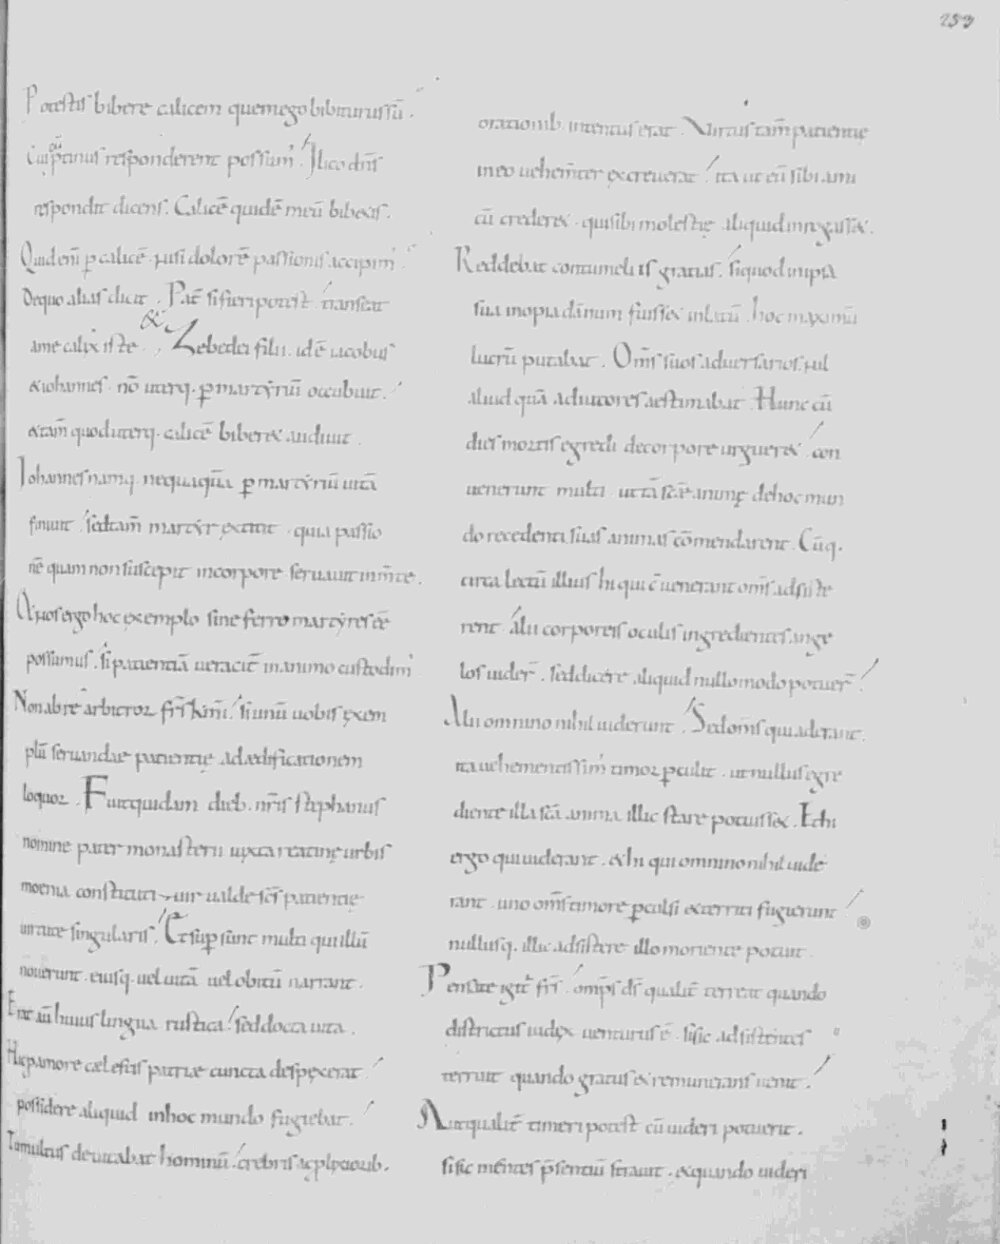 253
Potestis bibere calicem quem ego bibiturus sū.
Cui p̄tinus responderent possum'. Ilico dn̄s
respondit dicens. Calicē quidē meū bibetis.
Quid enī ꝑ calicē. nisi dolorē passionis accipim'.
De quo alias dicit. Pat̄ si fieri potest. transeat
a me calix iste. & Zebedei filii. idē iacobus
& iohannes. nō uterq. ꝑ martyriū occubuit.
& tam̄ quod uterq. calicē biberet audiuit.
Iohannes namq. nequaquā ꝑ martyriū uitā
finiuit. sed tam̄ martyr extitit. quia passio
nē quam non suscepit in corpore seruauit in m̄te.
Et nos ergo hoc exemplo sine ferro martyres eē
possumus. si patientiā ueracit̄ in animo custodim'.
Non ab re arbitror fr̄s km̄i. si unū uobis exem
plū seruandae patientię ad aedificationem
loquor. Fuit quidam dieb. nr̄is stephanus
nomine pater monasterii iuxta reatinę urbis
moenia constituti. uir ualde sc̄s patientię
uirtute singularis. Et suꝑsunt multi qui illū
nouerunt. eiusq. uel uitā uel obitū narrant.
Erat aū huius lingua rustica. sed docta uita.
Hic p amore caelestis patriae cuncta despexerat.
possidere aliquid in hoc mundo fugiebat.
Tumultus deuitabat hominū. crebris ac plixiorib.
orationib. intentus erat. Virtus tam̄ patientię
in eo uehem̄ter excreuerat. ita ut eū sibi ami
cū crederet. qui sibi molestię aliquid inrogasset.
Reddebat contumeliis gratias. si quod in ipsa
sua inopia dānum fuisset inlatū. hoc maximū
lucrū putabat. Om̄s suos aduersarios. nil
aliud quā adiutores aestimabat. Hunc cū
dies mortis egredi de corpore urgueret. con
uenerunt multi. ut tā sc̄ae animę de hoc mun
do recedenti suas animas cōmendarent. Cūq.
circa lectū illius hi qui cōuenerant om̄s adsiste
rent. alii corporeis oculis ingredientes ange
los uider̄. sed dicere aliquid nullo modo potuer̄.
Alii omnino nihil uiderunt. Sed om̄s qui aderant.
ita uehementissim' timor ꝑculit. ut nullus egre
diente illa sc̄a anima illic stare potuisset. Et hi
ergo qui uiderant. & hi qui omnino nihil uide
rant. uno om̄s timore ꝑculsi & territi fugierunt
nullusq. illic adsistere illo moriente potuit.
Pensate igit̄ fr̄s. omp̄s ds̄ qualit̄ terreat quando
districtus iudex uenturus ē. si sic adsistentes
terruit quando gratus & remunerans uenit.
Aut qualit̄ timeri potest cū uideri potuerit.
si sic mentes p̄sentiū strauit. & quando uideri